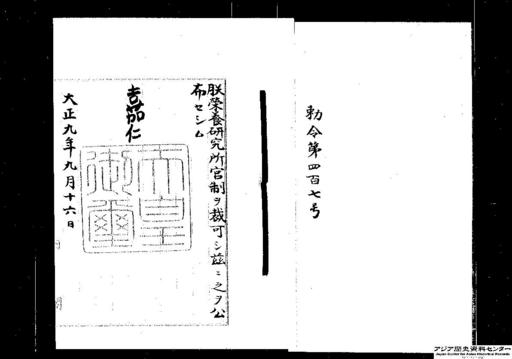 勅令第四百七号
朕榮養研究所官制ヲ裁可シ茲ニ之ヲ公
布セシム
嘉仁
天皇
御璽
大正九年九月十六日
アジア歴史資料センター
Japan Center for Asian Historical Records